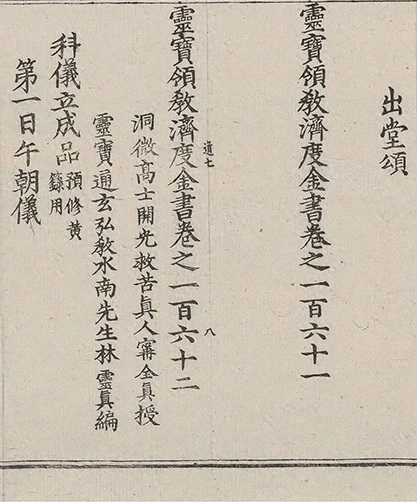 出堂頌
靈寶領敎濟度金書卷之一百六十一
道七
八
靈寶領敎濟度金書卷之一百六十二
洞微髙士開光救苦眞人甯全眞授
靈寶通玄弘敎水南先生林靈眞編
科儀立成品預修黄
籙用
第一日午朝儀